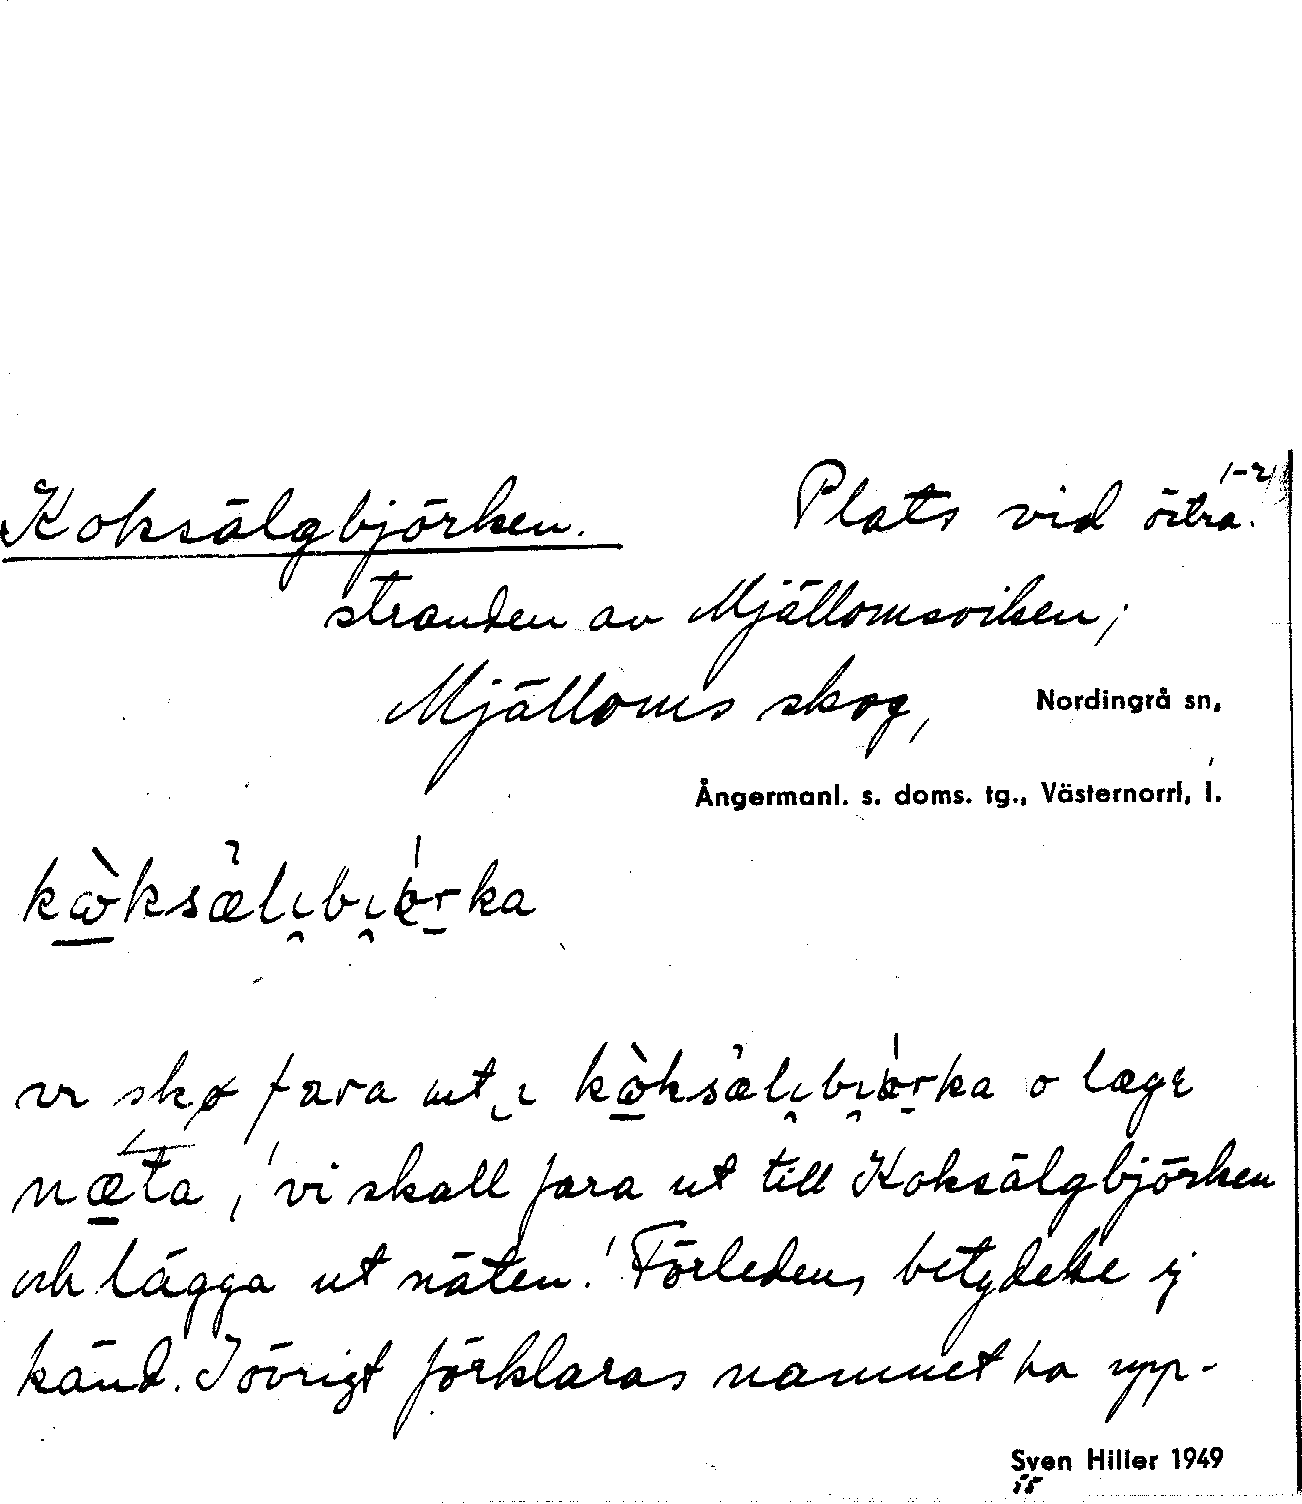 1-2
Koksälgbjörken. Plats vid östra.
stranden av Mjällomsviken,
Mjälloms skog, Nordingrå sn,
Ångermanl. s. doms. tg., Västernorrl, l.
vi skø fara ut
næta, 'vi skall fara ut till Koksälgbjörken
och lägga ut näten.' Förledens betydelse ej
känd. I övrigt förklaras namnet ha upp-
Sven Hiller 1949